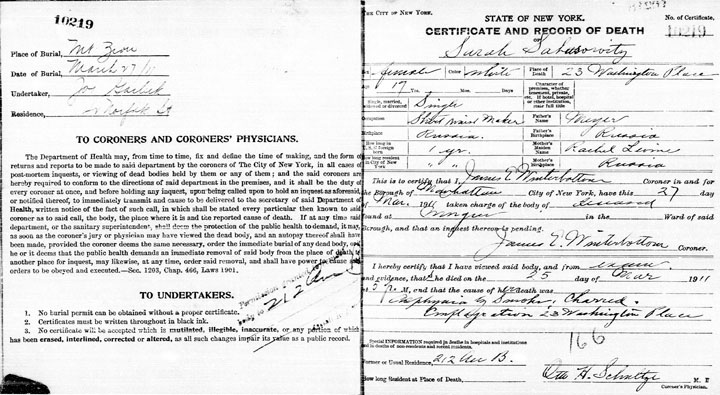 10219
Place of Burial, Mt Zion
Date of Burial, March 27/11
Undertaker,
Residence, Norfolk St
TO CORONERS AND CORONERS' PHYSICIANS.
The Department of Health may, from time to time, fix and define the time of making, and the form of
returns and reports to be made to said department by the coroners of The City of New York, in all cases of
post-mortem inquests, or viewing of dead bodies held by them or any of them; and the said coroners are
hereby required to conform to the directions of said department in the premises, and it shall be the duty of
every coroner at once, and before holding any inquest, upon being called upon to hold an inquest as aforesaid,
or notified thereof, to immediately transmit and cause to be delivered to the secretary of said Department of
Health, written notice of the fact of such call, in which shall be stated every particular then known to said
coroner as to said call, the body, the place where it is and the reported cause of death. If at any time said
department, or the sanitary superintendent, shall deem the protection of the public health to demand, it may,
so soon as the coroner's jury or physician may have viewed the dead body, and an autopsy thereof shall have
been made, provided the coroner deems the same necessary, order the immediate burial of any dead body, or
he or it deems that the public health demands an immediate removal of said body from the place of death to
another place for inquest, may likewise, at any time, order said removal, and shall have power to cause
orders to be obeyed and executed.—Sec. 1203, Chap. 466, Laws 1901.
212 Ave
TO UNDERTAKERS.
1. No burial permit can be obtained without a proper certificate.
2. Certificates must be written throughout in black ink.
3. No certificate will be accepted which is mutilated, illegible, inaccurate, or any portion of which
has been erased, interlined, corrected or altered, as all such changes impair its value as a public record.
THE CITY OF NEW YORK.
STATE OF NEW YORK.
No. of Certificate,
CERTIFICATE AND RECORD OF DEATH
10219
OF
Sarah Sabasowitz
female Color white Place of Death, 23 Washington Place
17 Yrs. Mos. Days
Character of premises, whether tenement, private, etc. If hotel, hospital or other institution, state full title
Single, married, widowed or divorced Single
Occupation Shirt Waist Maker Father's Name Meyer
Birthplace Russia. Father's Birthplace Russia
How long in U.S. if foreign born 1 yr. Mother's Maiden Name Rachel Levine
How long resident in City of New York " " Mother's Birthplace Russia
This is to certify that I, James E. Winterbottom Coroner in and for
the Borough of Manhattan City of New York, have this 27 day
of Mar. 1911 taken charge of the body of deceased
found at Morgue in the Ward of said
Borough, and that an inquest thereon is pending.
James E. Winterbottom Coroner.
I hereby certify that I have viewed said body, and from exam
and evidence, that he died on the 25 day of Mar 1911
at 5 P. M. and that the cause of her death was
Asphyxia by Smoke; Charred.
Employed at 23 Washington Place
166
Special INFORMATION required in deaths in hospitals and institutions
and in deaths of non-residents and recent residents.
Former or Usual Residence, 212 Ave B.
How long Resident at Place of Death, Otto H. Schultze M. D.
Coroner's Physician.